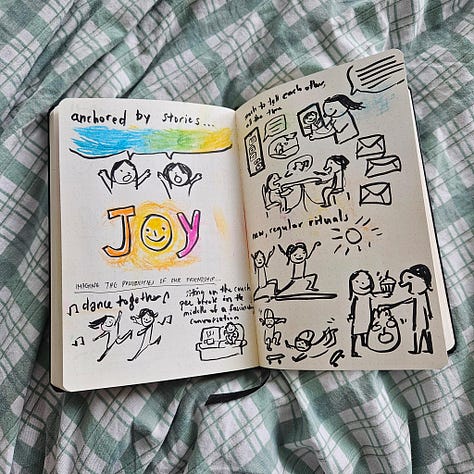 anchored by stories...
JOY
IMAGINE THE POSSIBILITIES OF OUR FRIENDSHIP...
dance together
sitting on the couch
pee break in the
middle of a
conversation
to tell each other,
all the time
regular rituals